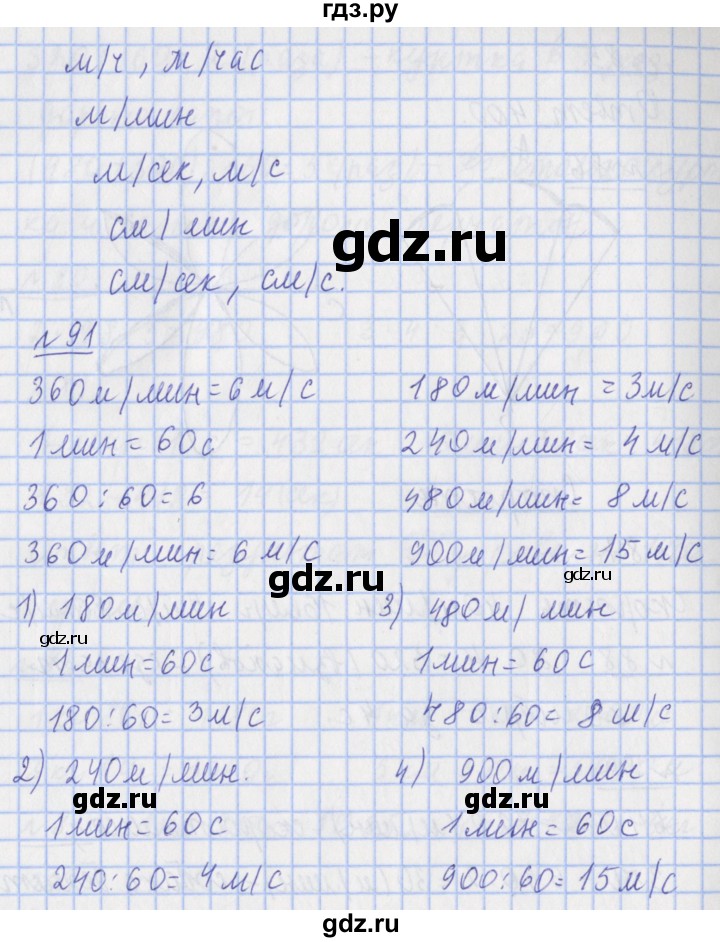 гдз.ру
м/ч, м/час
м/мин
м/сек, м/с
см/мин
gdz.ru
см/сек, см/с.
№91
360м/мин=6м/с
1мин=60с
360:60=6
360м/мин=6м/с
180м/мин=3м/с
240м/мин=4м/с
480м/мин=8м/с
900м/мин=15м/с
gdz.ru
gdz.ru
1) 180м/мин
gdz.ru
1мин=60с
180:60=3м/с
2) 240м/мин.
gdz.ru
1мин=60с
240:60=4м/с
3) 480м/мин
1мин=60с
480:60=8м/с
4) 900м/мин
gdz.ru
1мин=60с
900:60=15м/с
gdz.ru